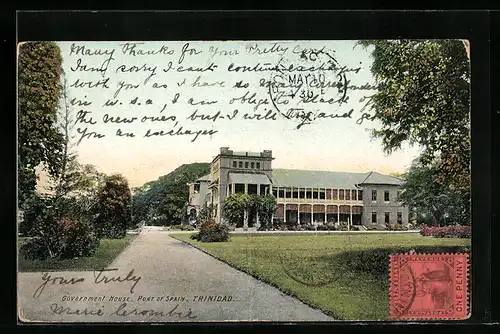 Many Thanks for Your Pretty Card.
I am sorry I can't continue exchange
with you as I have so many correspondents
in U.S.A. I am obliged to block
the new ones, but I will try and get
you an exchanger
AC
MY 10
30
Yours truly
Marie
Government House, Port of Spain, Trinidad.
ONE PENNY